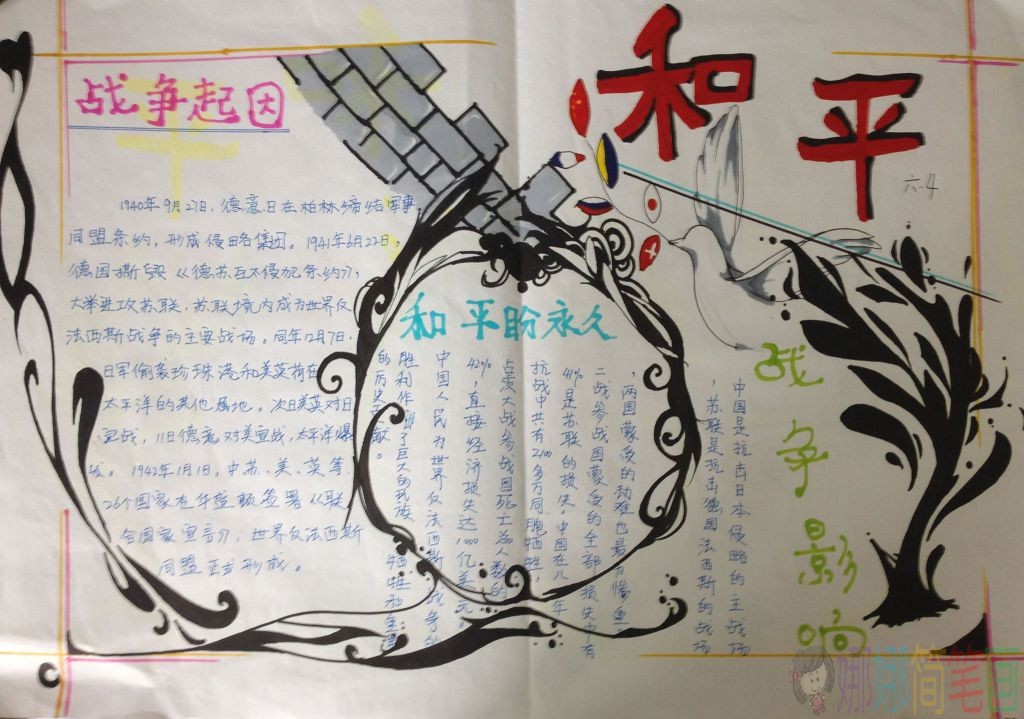 和平
六.4
战争起因
1940年9月27日，德意日在柏林缔结军事
同盟条约，形成侵略集团。1941年6月22日，
德国撕毁《德苏互不侵犯条约》，
大举进攻苏联，苏联境内成为世界反
法西斯战争的主要战场。同年12月7日，
日军偷袭珍珠港和美英荷在
太平洋的其他属地。次日美英对日
宣战，11日德意对美宣战，太平洋爆
发。1942年1月1日，中苏、美、英等
26个国家在华盛顿签署《联
合国家宣言》，世界反法西斯
同盟正式形成。
和平盼永久
战争影响
中国是抗击日本侵略的主战场
，苏联是抗击德国法西斯的战场
，两国蒙受的劫难也最为惨重。
二战参战国蒙受的全部损失中有
41%是苏联的损失。中国在八年
抗战中共有2100多万同胞牺牲，
占二战参战国死亡总人数的
42%，直接经济损失达1000亿美元。
中国人民为世界反法西斯战争的
胜利作出了巨大的民族牺牲和
的历史贡献。
娜娜简笔画